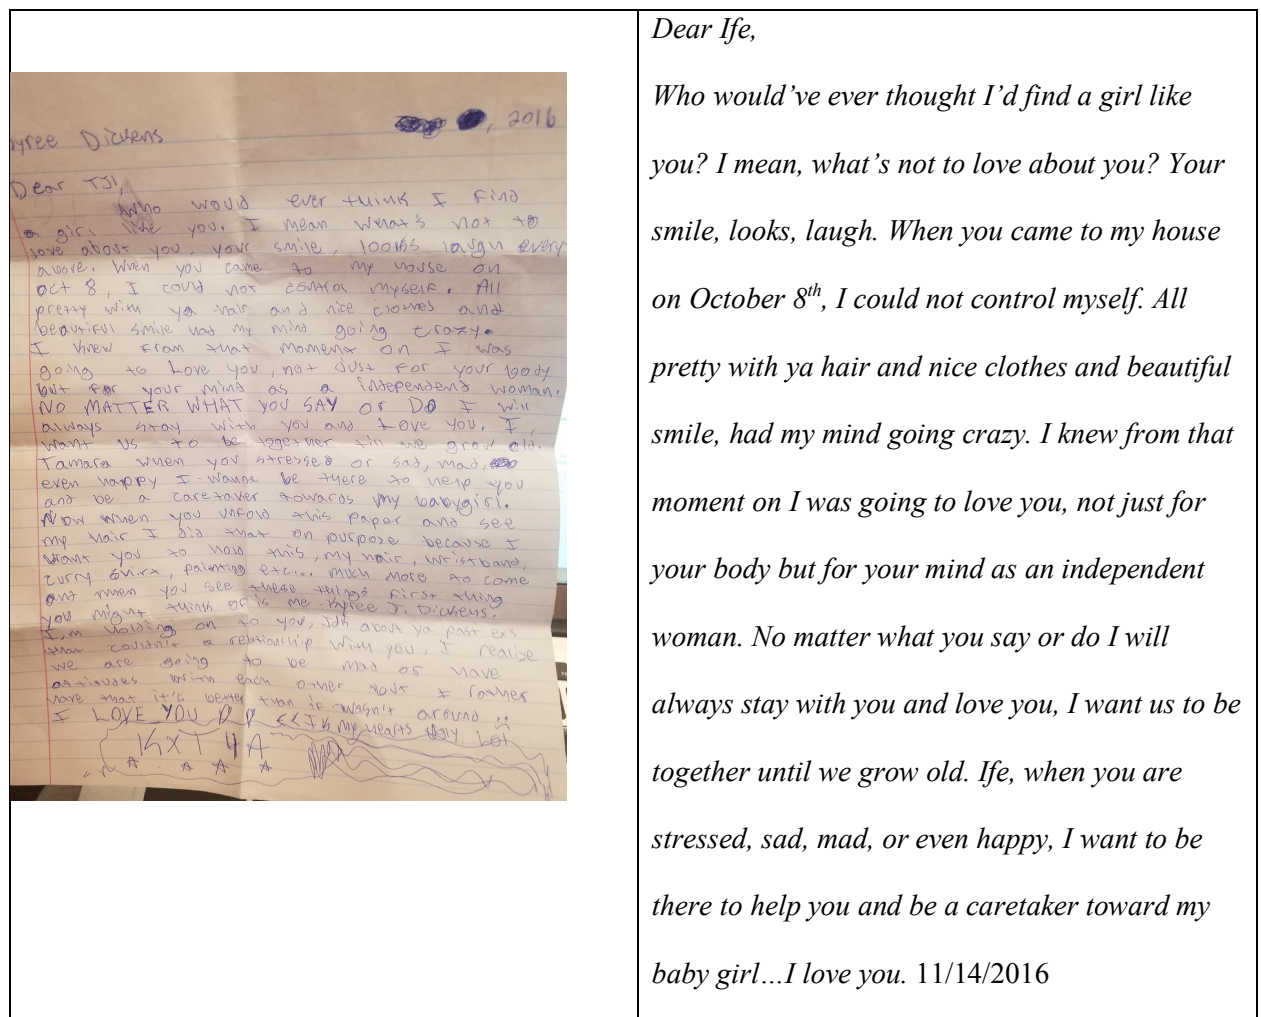 yree Dickens
, 2016
Dear TJ1,
Who would ever think I find
a girl like you. I mean what's not to
love about you, your smile, looks laugh every
above. When you came to my house on
oct 8, I could not control myself. All
pretty with ya hair and nice clothes and
beautiful smile had my mind going crazy.
I knew from that moment on I was
going to love you, not just for your body
but for your mind as a independent woman.
NO MATTER WHAT YOU SAY or DO I will
always stay with you and love you. I
want us to be together till we grow old.
Tamara when you stressed or sad, mad,
even happy I wanna be there to help you
and be a caretaker towards my babygirl.
Now when you unfold this paper and see
my hair I did that on purpose because I
want you to hold this, my hair, wristband,
curry shirt, painting etc... much more to come
and when you see these things first thing
you might think of is me Kyree J. Dickens.
I,m holding on to you, Idk about ya past exs
that couldn't a relationship with you, I realize
we are going to be mad or have
attitudes with each other but I rather
have that it's better than if wasn't around
I LOVE YOU my hearts
KXT 4A
Dear Ife,
Who would’ve ever thought I’d find a girl like
you? I mean, what’s not to love about you? Your
smile, looks, laugh. When you came to my house
on October 8th, I could not control myself. All
pretty with ya hair and nice clothes and beautiful
smile, had my mind going crazy. I knew from that
moment on I was going to love you, not just for
your body but for your mind as an independent
woman. No matter what you say or do I will
always stay with you and love you, I want us to be
together until we grow old. Ife, when you are
stressed, sad, mad, or even happy, I want to be
there to help you and be a caretaker toward my
baby girl…I love you. 11/14/2016